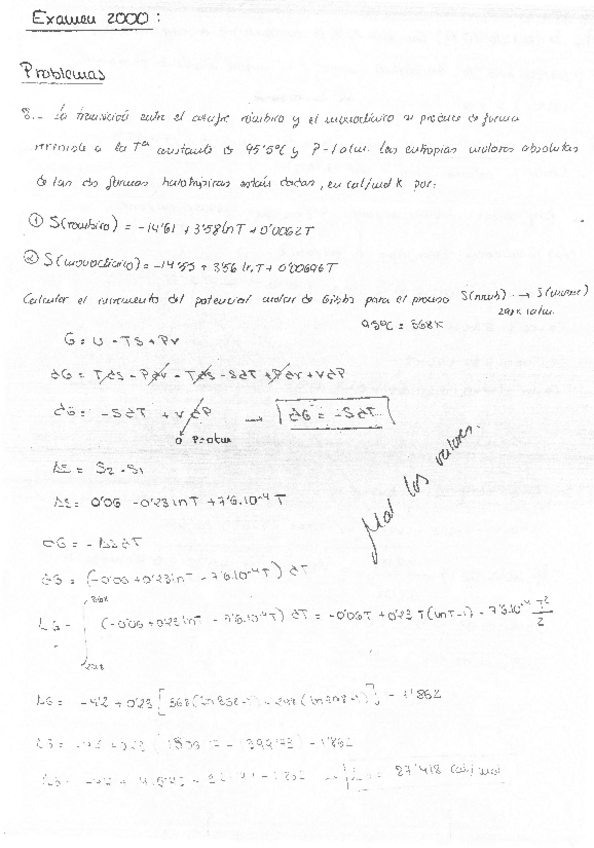 Examen 2000:
Problemas
8.- La transición entre el azufre rómbico y el monoclínico se produce de forma
reversible a la Tª constante de 95'5ºC y P=1 atm. Las entropías molares absolutas
de las dos formas alotrópicas están dadas, en cal/mol K por:
① S(rómbico) = -14'61 + 3'58 ln T + 0'0062T
② S(monoclínico) = -14'55 + 3'56 ln T + 0'00696T
Calcular el incremento del potencial molar de Gibbs para el proceso S(romb) → S(monoc)
298K 1 atm.
95ºC = 368K
G = U - TS + PV
dG = TdS - PdV - TdS - SdT + PdV + VdP
dG = -SdT + VdP → dG = -SdT
0 P=1 atm
ΔS = S2 - S1
ΔS = 0'06 - 0'23 ln T + 7'6·10⁻⁴ T
Mal los valores.
dG = -ΔS dT
dG = (-0'06 + 0'23 ln T - 7'6·10⁻⁴ T) dT
368
ΔG = ∫ (-0'06 + 0'23 ln T - 7'6·10⁻⁴ T) dT = -0'06T + 0'23 T (ln T - 1) - 7'6·10⁻⁴ T²/2
298
ΔG = -4'2 + 0'23 [368 (ln 368 - 1) - 298 (ln 298 - 1)]
ΔG =
27'418 cal/mol